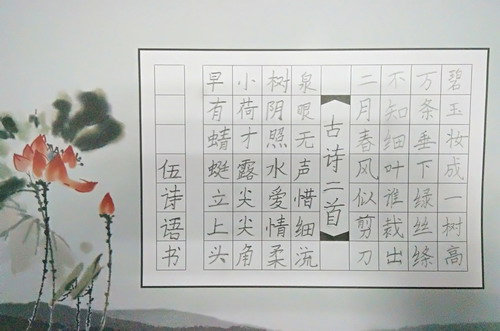 碧玉妆成一树高
万条垂下绿丝绦
不知细叶谁裁出
二月春风似剪刀
古诗二首
泉眼无声惜细流
树阴照水爱情柔
小荷才露尖尖角
早有蜻蜓立上头
伍诗语书